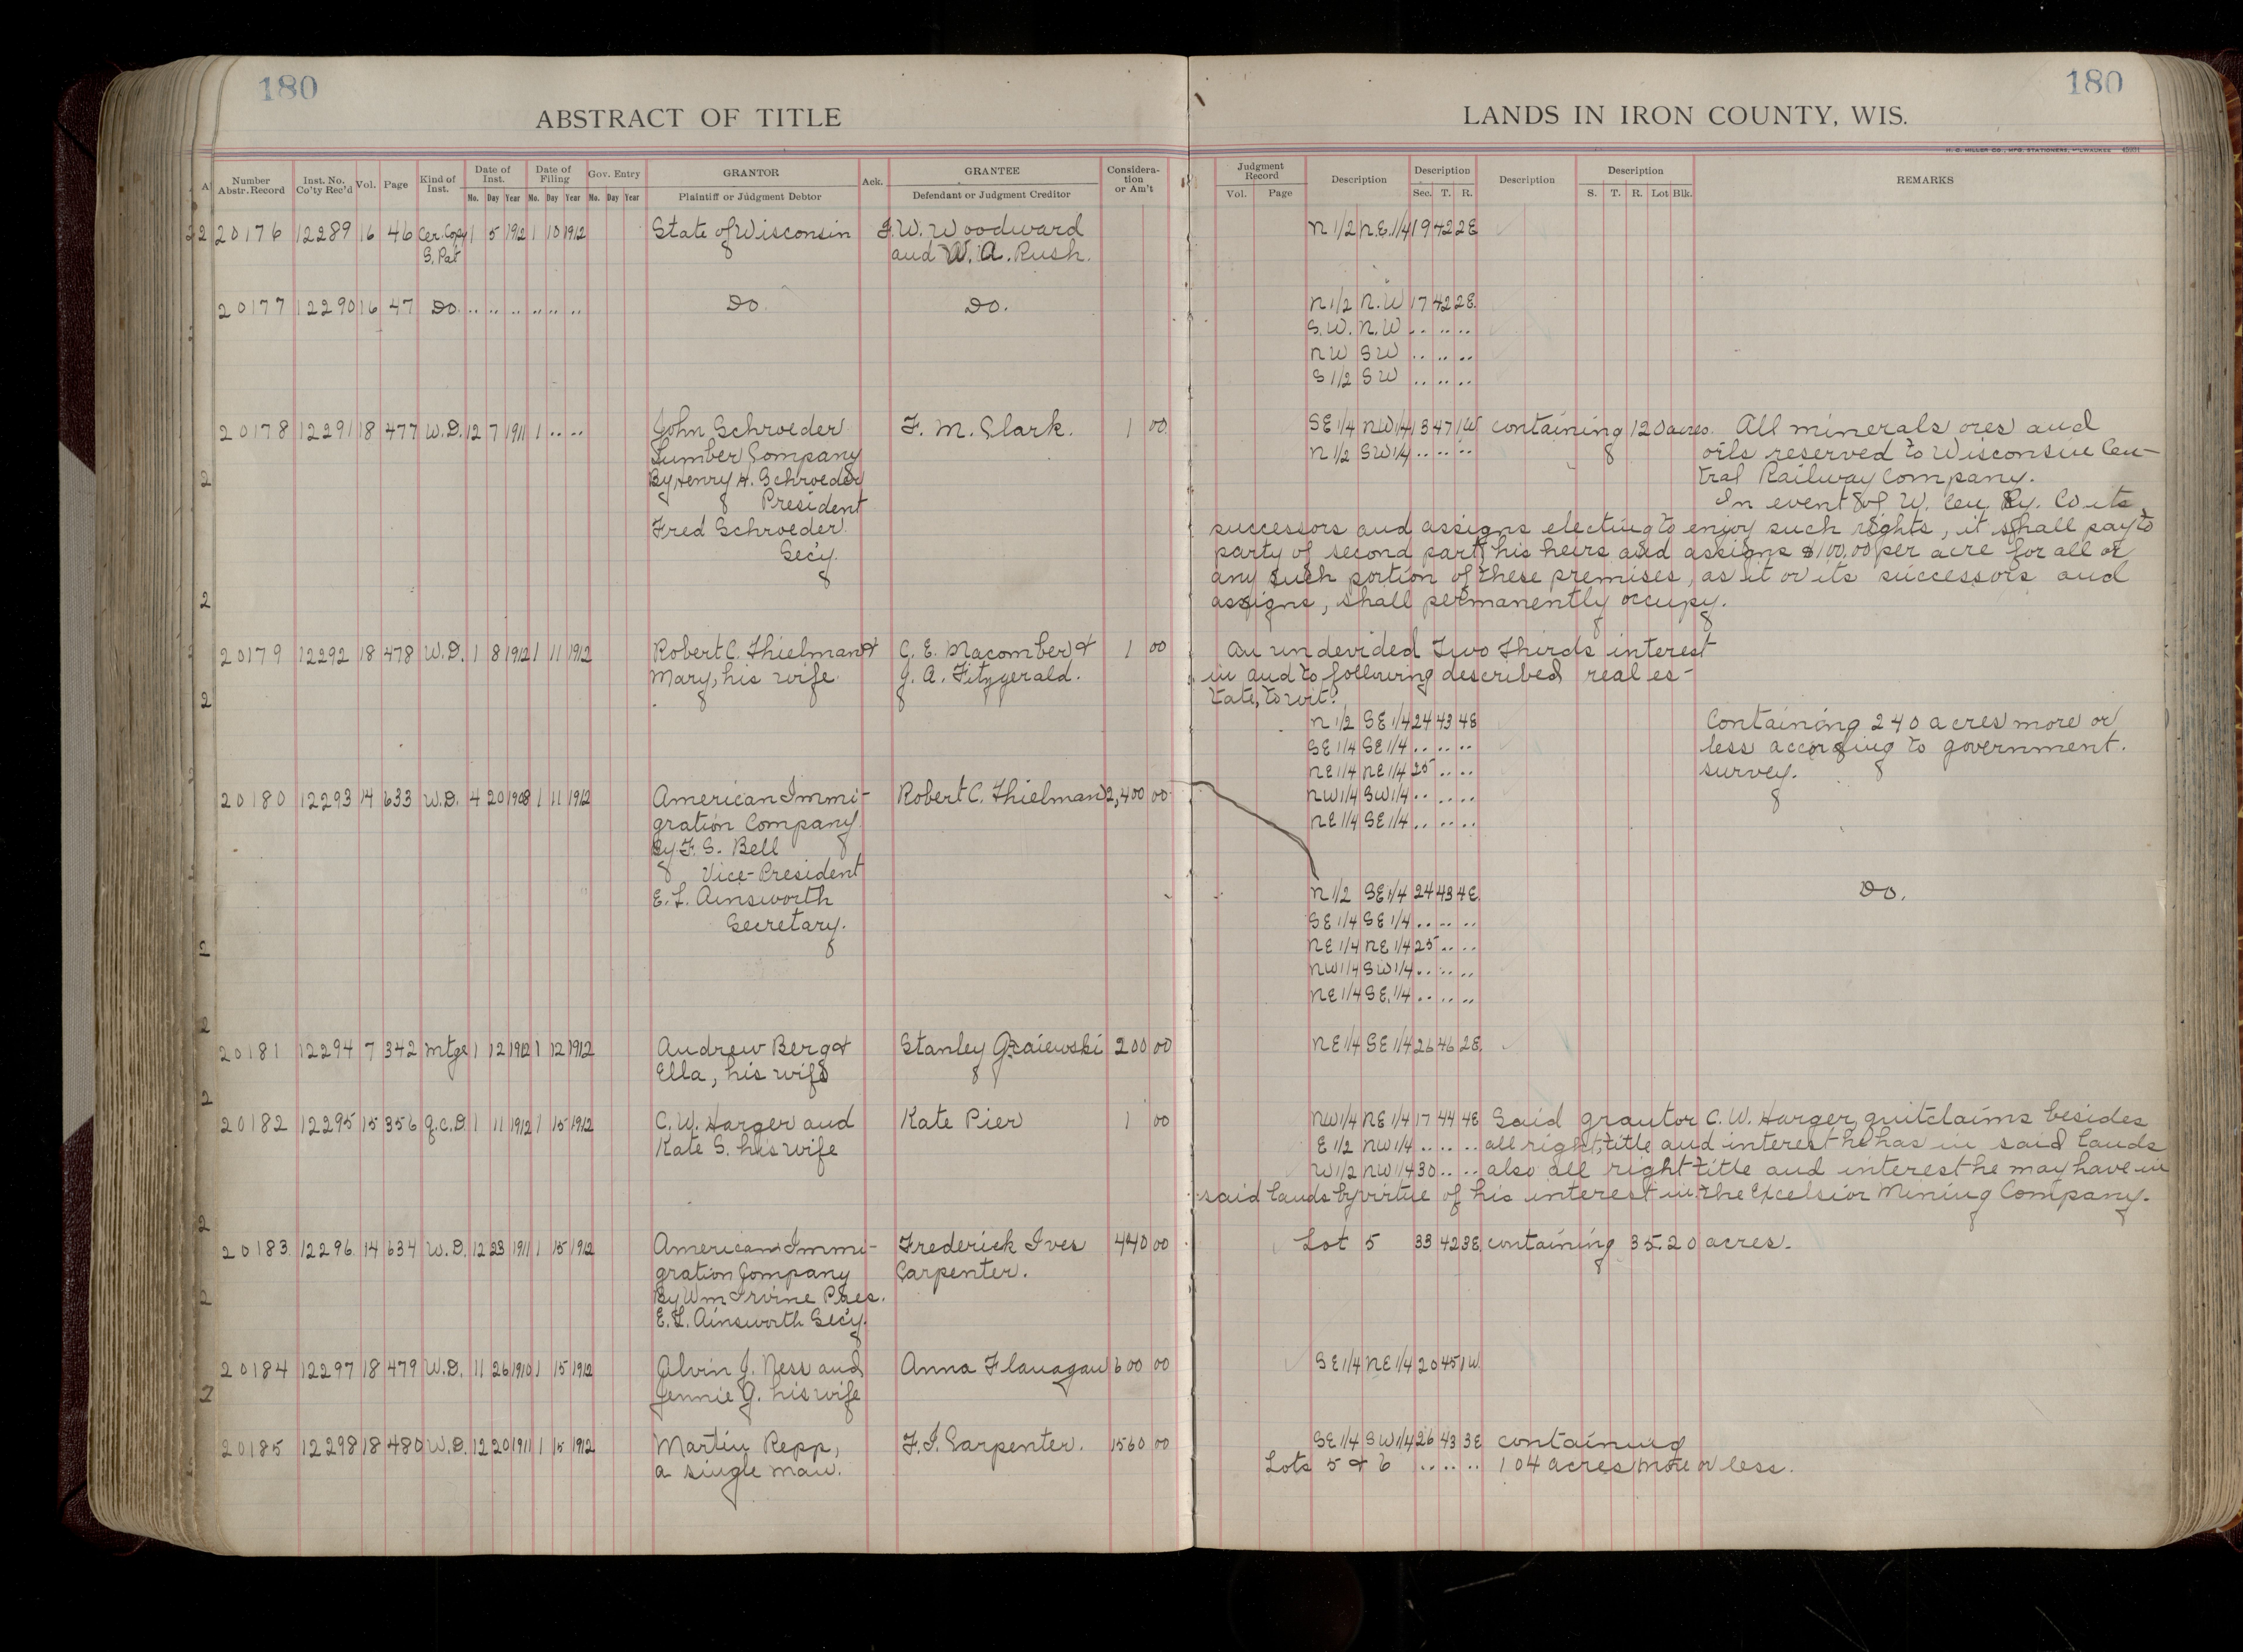 180
180
ABSTRACT OF TITLE
LANDS IN IRON COUNTY, WIS.
H. C. MILLER CO., MFG. STATIONERS, MILWAUKEE
Number Abstr. Record | Inst. No. Co'ty Rec'd | Vol. | Page | Kind of Inst. | Date of Inst. Mo. Day Year | Date of Filing Mo. Day Year | Gov. Entry Mo. Day Year | GRANTOR Plaintiff or Judgment Debtor | Ack. | GRANTEE Defendant or Judgment Creditor | Considera-tion or Am't | Judgment Record Vol. Page | Description | Description Sec. T. R. | Description | Description S. T. R. Lot Blk. | REMARKS
20176 12289 16 46 Cer. Copy 1 5 1912 1 10 1912 State of Wisconsin F. W. Woodward N 1/2 N.E. 1/4 19 42 2E
S. Pat and W. A. Rush.
20177 12290 16 47 Do. .. .. .. .. .. .. Do. Do. N 1/2 N.W 17 42 2E.
S.W. N.W .. .. ..
NW SW .. .. ..
S 1/2 SW .. .. ..
20178 12291 18 477 W.D. 12 7 1911 1 .. .. John Schroeder F. M. Clark. 1 00 SE 1/4 NW 1/4 13 47 1W containing 120 acres. All minerals ores and
Lumber Company N 1/2 SW 1/4 .. .. .. oils reserved to Wisconsin Cen-
By Henry A. Schroeder tral Railway Company.
President In event of W. Cen. Ry. Co its
Fred Schroeder successors and assigns electing to enjoy such rights, it shall pay to
Sec'y. party of second part his heirs and assigns $100.00 per acre for all or
any such portion of these premises, as it or its successors and
assigns, shall permanently occupy.
20179 12292 18 478 W.D. 1 8 1912 1 11 1912 Robert C. Thielman & C. E. Macomber & 1 00 An undevided Two Thirds interest
Mary, his wife J. A. Fitzgerald. in and to following described real es-
tate, to wit:
N 1/2 SE 1/4 24 43 4E Containing 240 acres more or
SE 1/4 SE 1/4 .. .. .. less according to government.
NE 1/4 NE 1/4 25 .. .. survey.
20180 12293 14 633 W.D. 4 20 1908 1 11 1912 American Immi- Robert C. Thielman 2,400 00 NW 1/4 SW 1/4 .. .. ..
gration Company NE 1/4 SE 1/4 .. .. ..
By F. S. Bell
Vice-President
E. L. Ainsworth N 1/2 SE 1/4 24 43 4E. Do.
Secretary. SE 1/4 SE 1/4 .. .. ..
NE 1/4 NE 1/4 25 .. ..
NW 1/4 SW 1/4 .. .. ..
NE 1/4 SE 1/4 .. .. ..
20181 12294 7 342 Mtge 1 12 1912 1 12 1912 Andrew Berg & Stanley 200 00 NE 1/4 SE 1/4 26 46 2E.
Ella, his wife
20182 12295 15 356 Q.C.D. 1 11 1912 1 15 1912 C. W. Harger and Kate Pier 1 00 NW 1/4 NE 1/4 17 44 4E Said grantor C. W. Harger, quitclaims besides
Kate S. his wife E 1/2 NW 1/4 .. .. .. all right, title and interest he has in said lands
W 1/2 NW 1/4 30 .. .. also all right title and interest he may have in
said lands by virtue of his interest in the Excelsior Mining Company.
20183 12296 14 634 W.D. 12 23 1911 1 15 1912 American Immi- Frederick Ives 440 00 Lot 5 33 42 3E containing 35.20 acres.
gration Company Carpenter.
By Wm Irvine Pres.
E. L. Ainsworth Sec'y.
20184 12297 18 479 W.D. 11 26 1910 1 15 1912 Alvin J. Ness and Anna Flanagan 600 00 SE 1/4 NE 1/4 20 45 1W.
Jennie G. his wife
20185 12298 18 480 W.D. 12 20 1911 1 15 1912 Martin Repp, F. I. Carpenter. 1560 00 SE 1/4 SW 1/4 26 43 3E containing
a single man. Lots 5 & 6 .. .. .. 104 acres more or less.